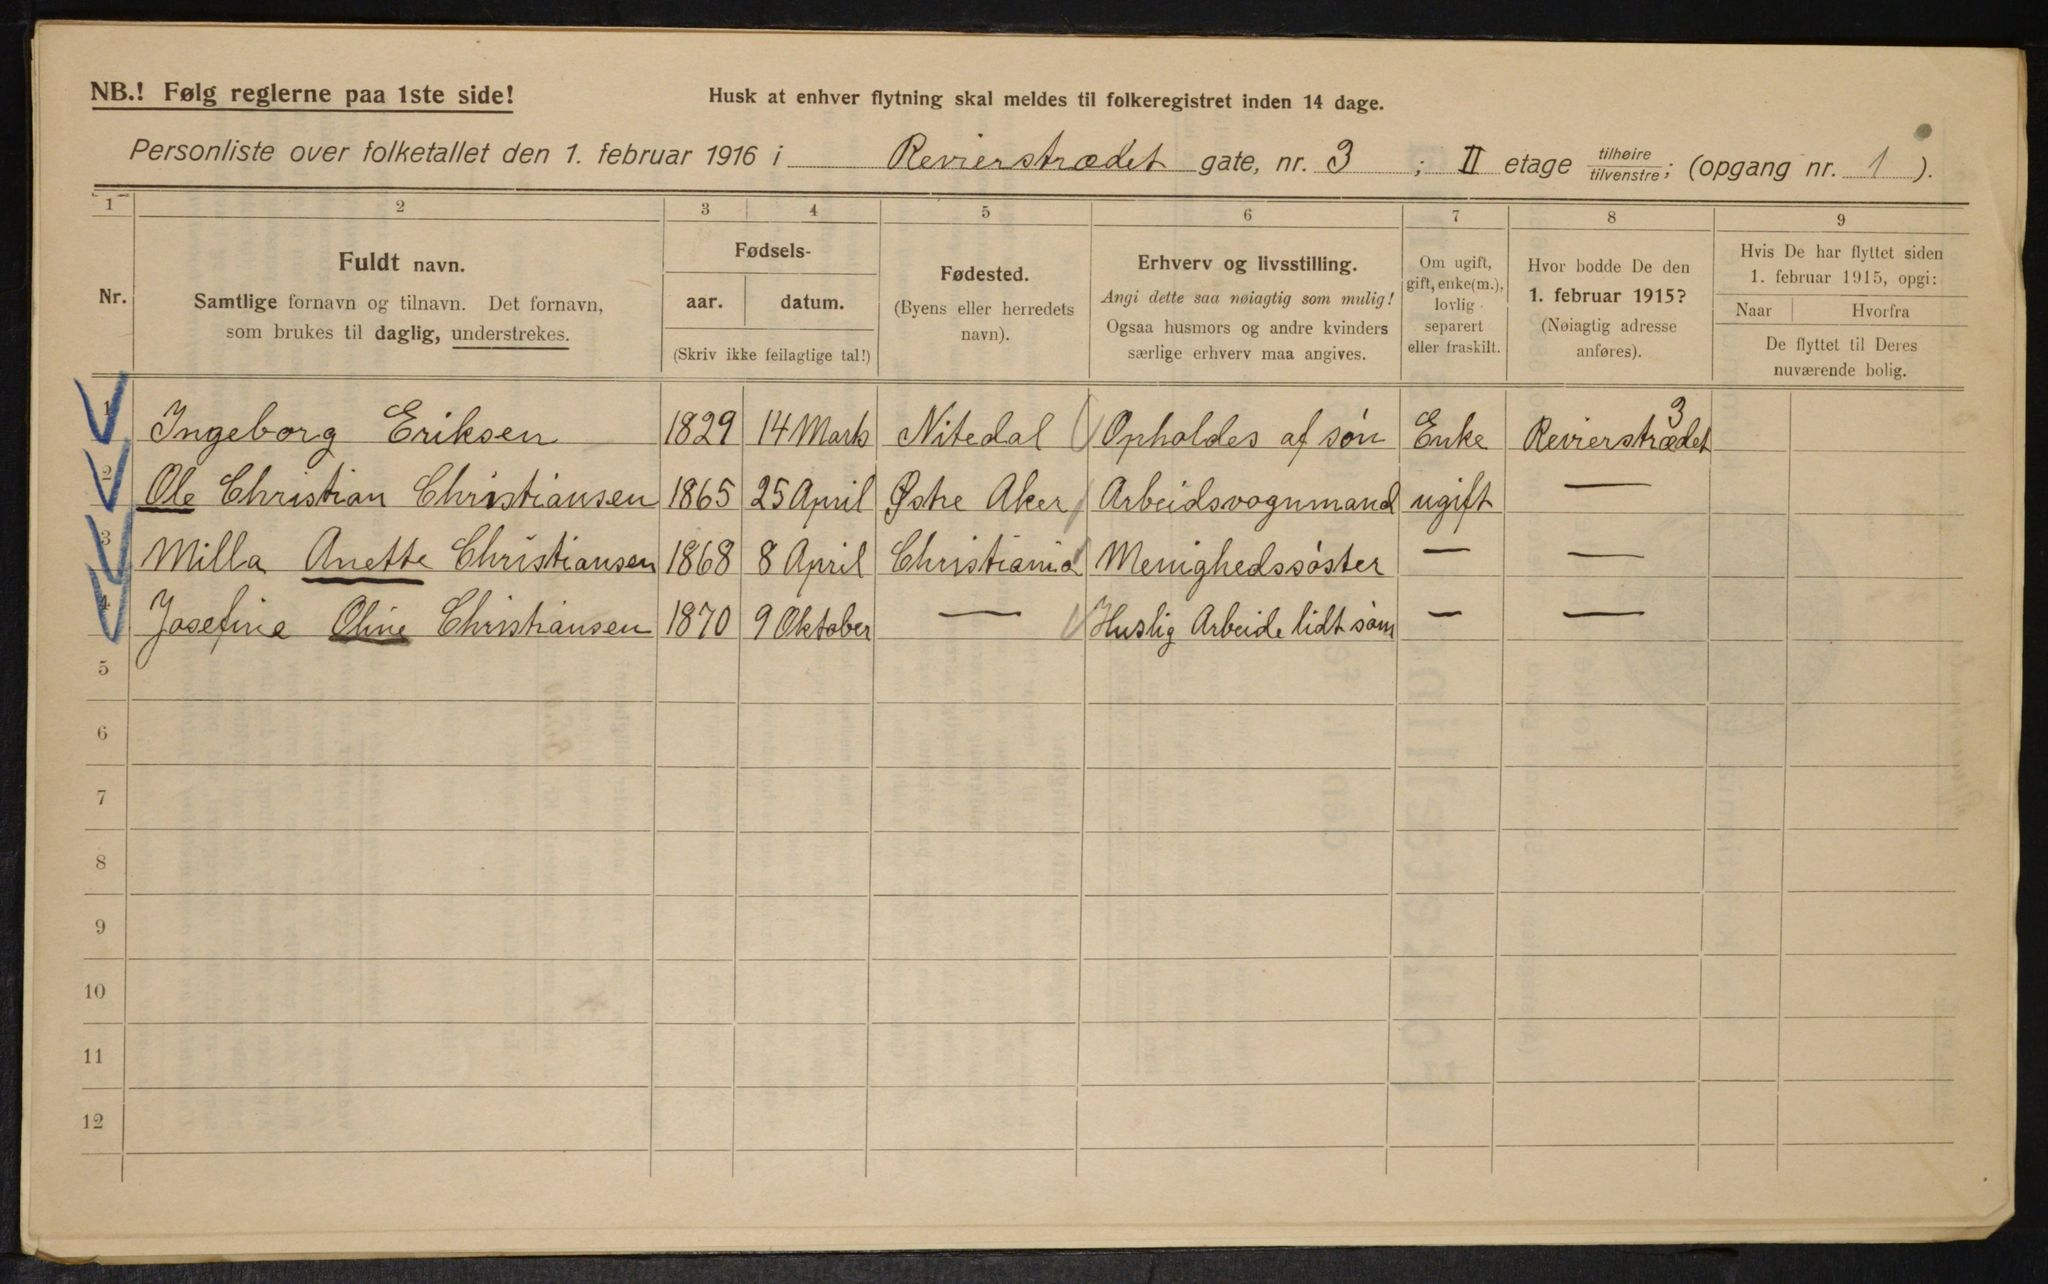 NB.! Følg reglerne paa 1ste side!
Husk at enhver flytning skal meldes til folkeregistret inden 14 dage.
Personliste over folketallet den 1. februar 1916 i Revierstrædet gate, nr. 3 ; II etage tilhøire tilvenstre; (opgang nr. 1 ).
1 2 3 4 5 6 7 8 9
Nr.
Fuldt navn.
Samtlige fornavn og tilnavn. Det fornavn,
som brukes til daglig, understrekes.
Fødsels-
aar. datum.
(Skriv ikke feilagtige tal!)
Fødested.
(Byens eller herredets
navn).
Erhverv og livsstilling.
Angi dette saa nøiagtig som mulig!
Ogsaa husmors og andre kvinders
særlige erhverv maa angives.
Om ugift,
gift, enke(m.),
lovlig
separert
eller fraskilt.
Hvor bodde De den
1. februar 1915?
(Nøiagtig adresse
anføres).
Hvis De har flyttet siden
1. februar 1915, opgi:
Naar Hvorfra
De flyttet til Deres
nuværende bolig.
1 Ingeborg Eriksen 1829 14 Marts Nitedal Opholdes af søn Enke Revierstrædet 3
2 Ole Christian Christiansen 1865 25 April Østre Aker Arbeidsvognmand ugift —
3 Milla Anette Christiansen 1868 8 April Christiania Menighedssøster — —
4 Josefine Oline Christiansen 1870 9 Oktober — Huslig Arbeide lidt søm — —
5
6
7
8
9
10
11
12